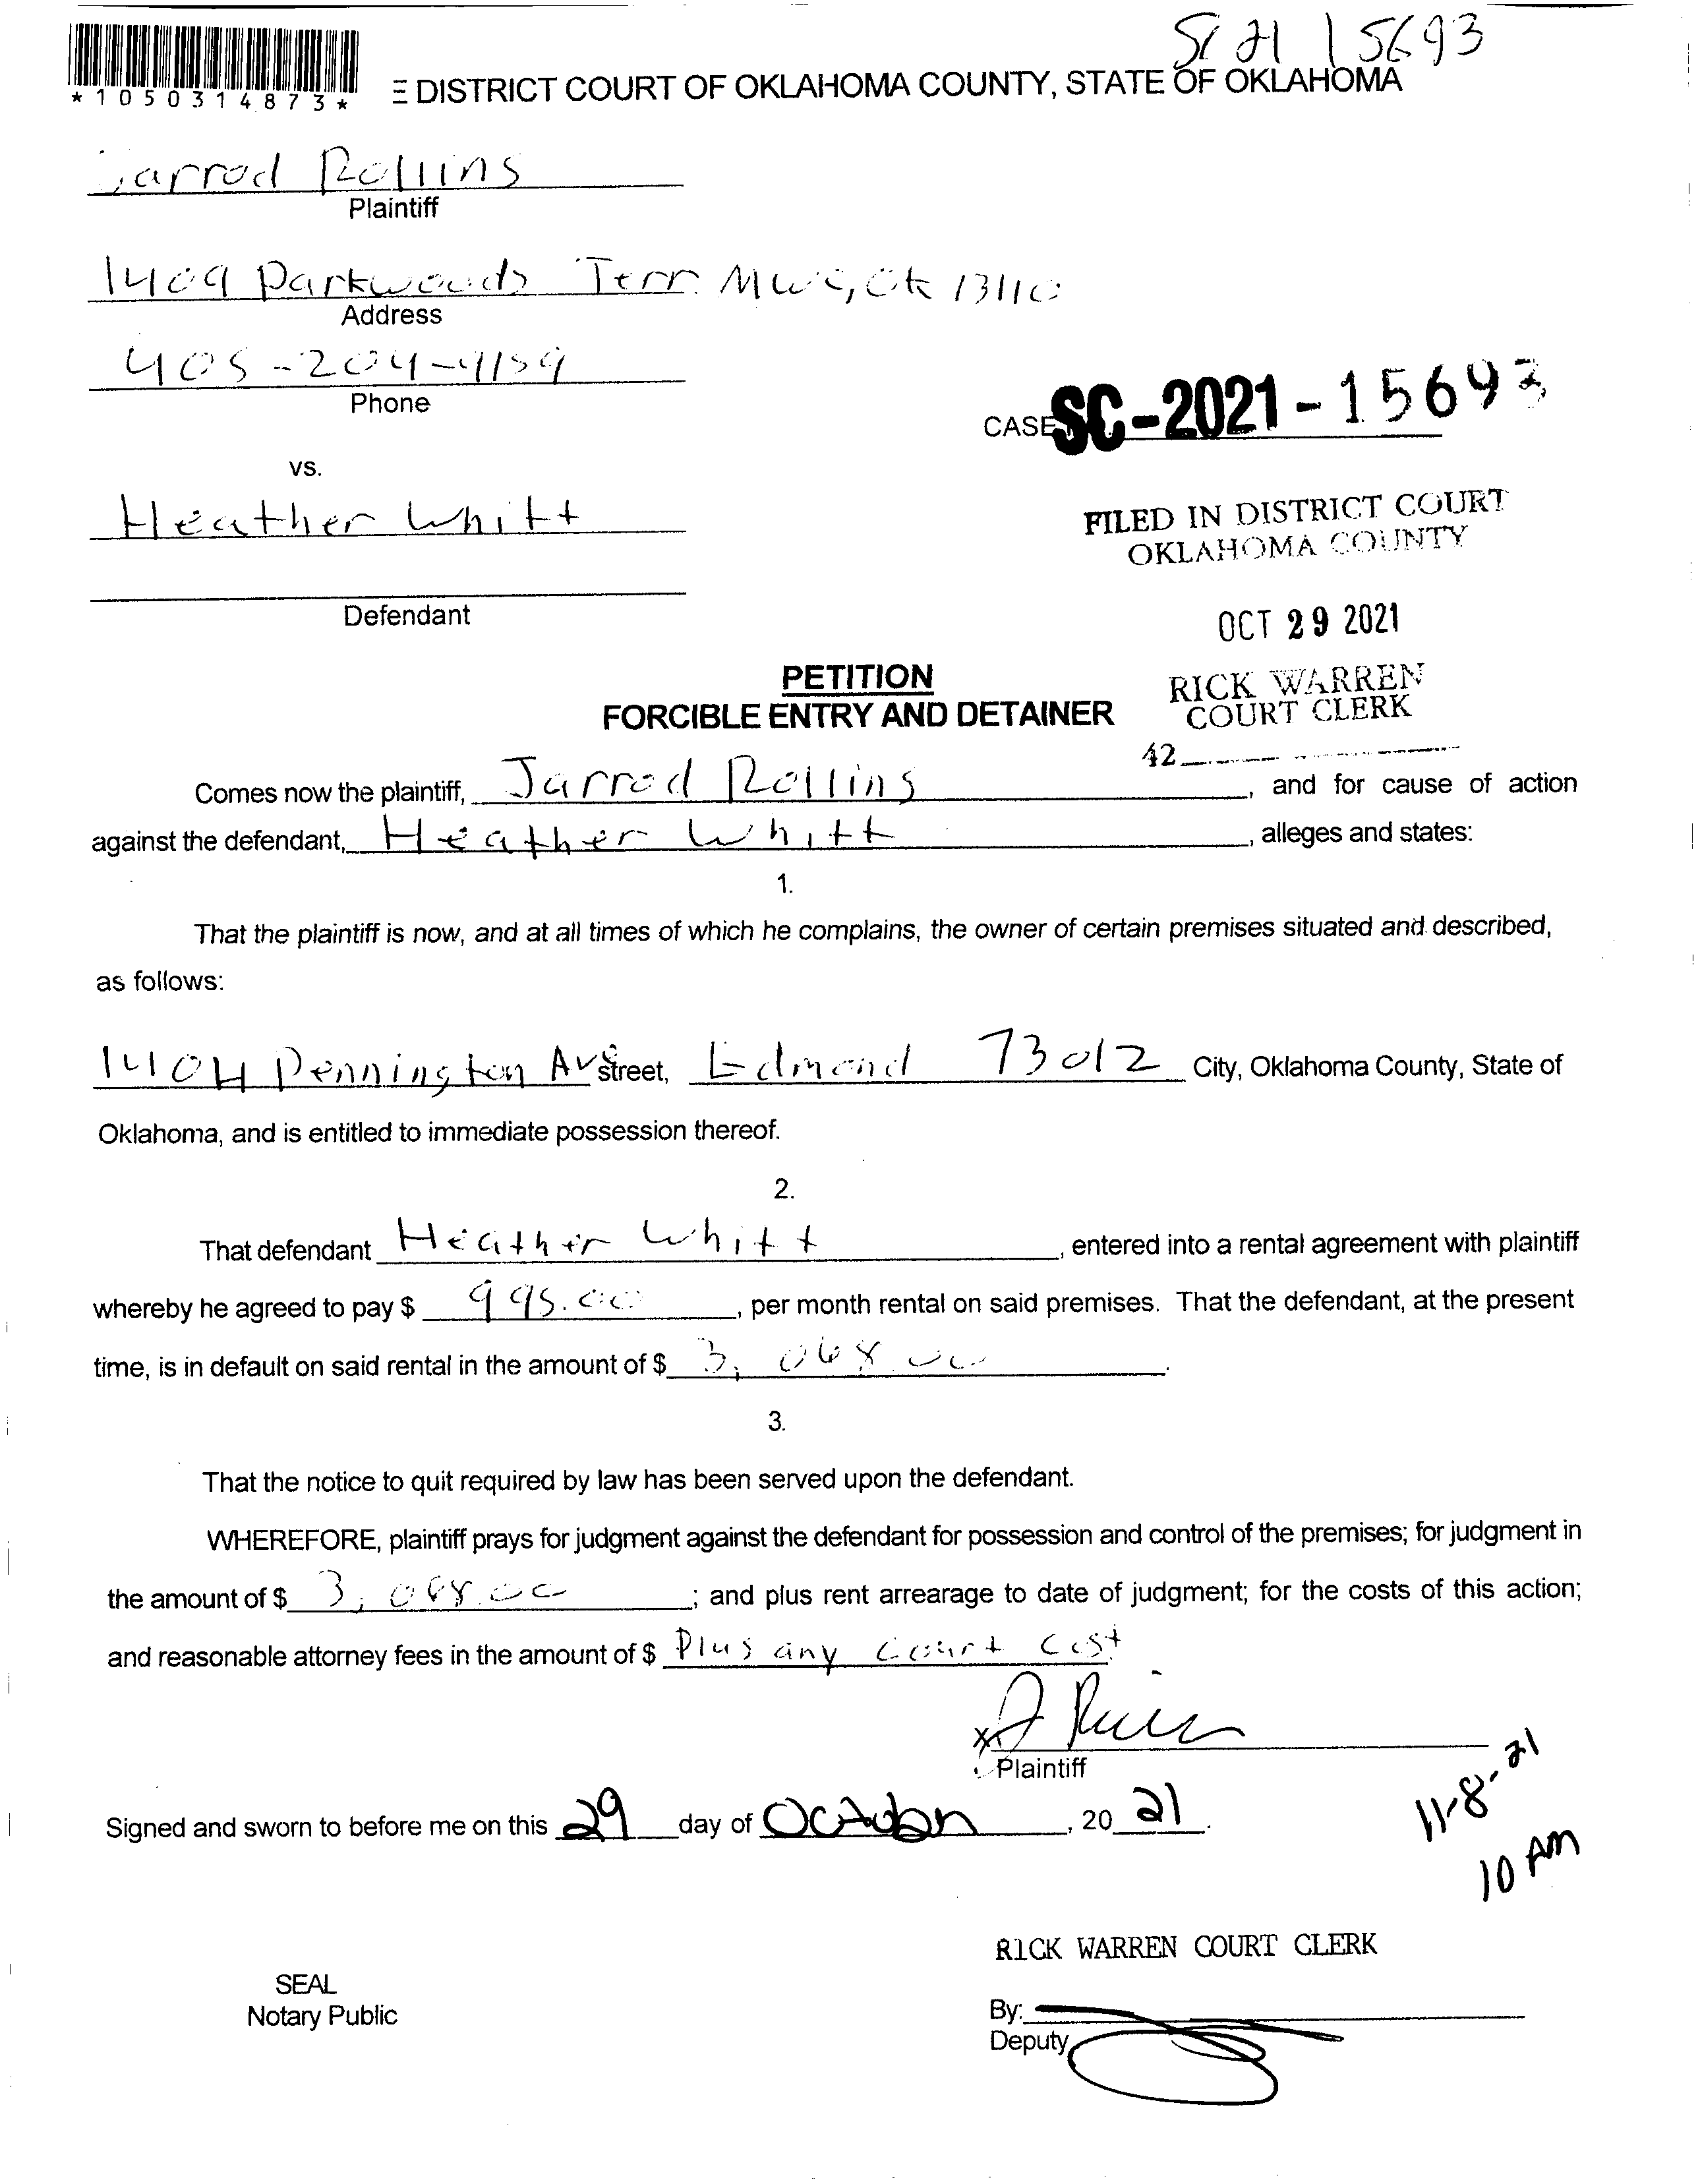 SC 21 15693
*1050314873*
E DISTRICT COURT OF OKLAHOMA COUNTY, STATE OF OKLAHOMA
Jarrod Rollins
Plaintiff
1409 Parkwoods Terr. MWC, Ok 73110
Address
405-204-
Phone
CASE SC-2021-15693
vs.
Heather Whitt
FILED IN DISTRICT COURT
OKLAHOMA COUNTY
Defendant
OCT 29 2021
PETITION
FORCIBLE ENTRY AND DETAINER
RICK WARREN
COURT CLERK
42
Comes now the plaintiff, Jarrod Rollins, and for cause of action
against the defendant, Heather Whitt, alleges and states:
1.
That the plaintiff is now, and at all times of which he complains, the owner of certain premises situated and described,
as follows:
1404 Pennington Av Street, Edmond 73012 City, Oklahoma County, State of
Oklahoma, and is entitled to immediate possession thereof.
2.
That defendant Heather Whitt, entered into a rental agreement with plaintiff
whereby he agreed to pay $ 995.00, per month rental on said premises. That the defendant, at the present
time, is in default on said rental in the amount of $ 3,068.00.
3.
That the notice to quit required by law has been served upon the defendant.
WHEREFORE, plaintiff prays for judgment against the defendant for possession and control of the premises; for judgment in
the amount of $ 3,068.00; and plus rent arrearage to date of judgment; for the costs of this action;
and reasonable attorney fees in the amount of $ Plus any court cost
X
Plaintiff
Signed and sworn to before me on this 29 day of October, 20 21.
11-8-21
10 AM
RICK WARREN COURT CLERK
SEAL
Notary Public
By:
Deputy